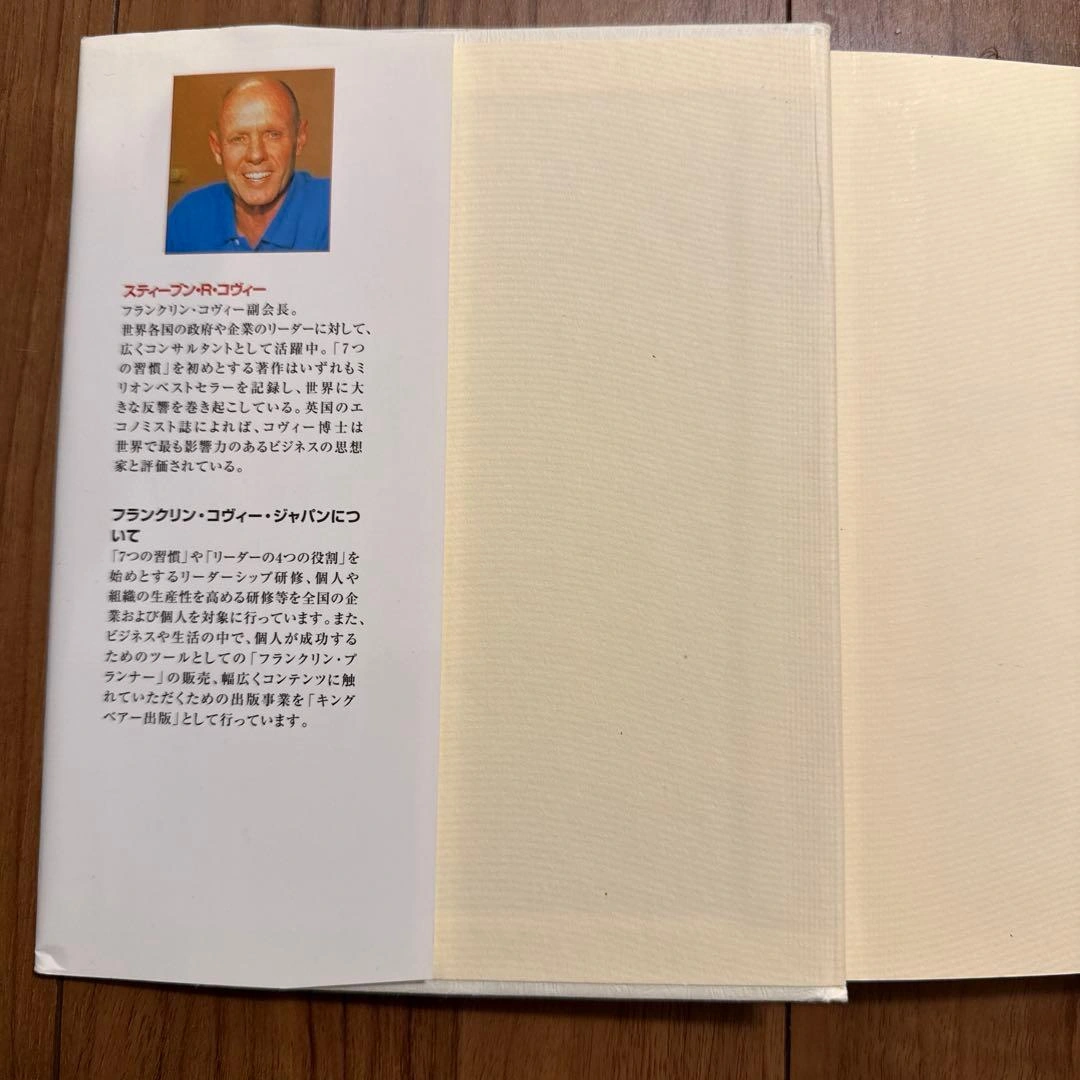 スティーブン・R・コヴィー
フランクリン・コヴィー副会長。
世界各国の政府や企業のリーダーに対して、
広くコンサルタントとして活躍中。「7つ
の習慣」を初めとする著作はいずれもミ
リオンベストセラーを記録し、世界に大
きな反響を巻き起こしている。英国のエ
コノミスト誌によれば、コヴィー博士は
世界で最も影響力のあるビジネスの思想
家と評価されている。
フランクリン・コヴィー・ジャパンにつ
いて
「7つの習慣」や「リーダーの4つの役割」を
始めとするリーダーシップ研修、個人や
組織の生産性を高める研修等を全国の企
業および個人を対象に行っています。また、
ビジネスや生活の中で、個人が成功する
ためのツールとしての「フランクリン・プ
ランナー」の販売、幅広くコンテンツに触
れていただくための出版事業を「キング
ベアー出版」として行っています。